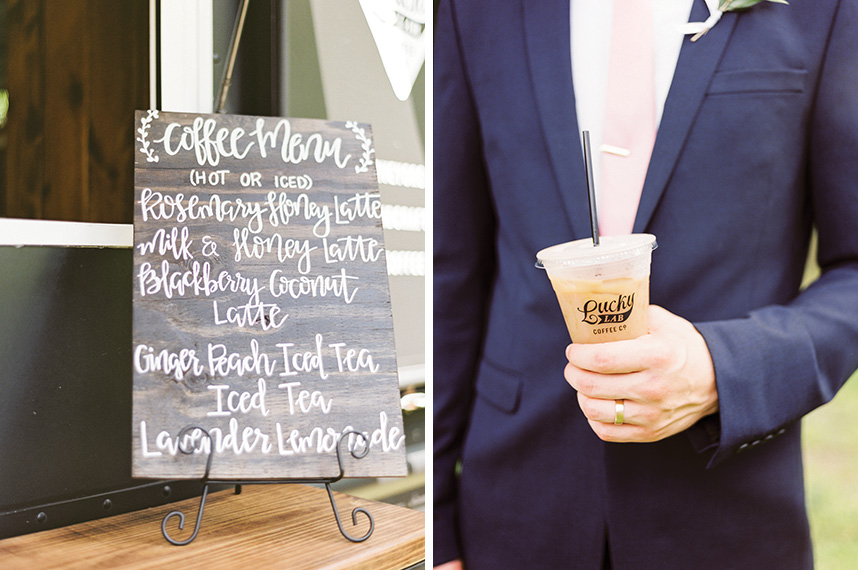 Coffee Menu
(HOT OR ICED)
Rosemary Honey Latte
Milk & Honey Latte
Blackberry Coconut
Latte
Ginger Peach Iced Tea
Iced Tea
Lavender Lemonade
Lucky
LAB
COFFEE CO.